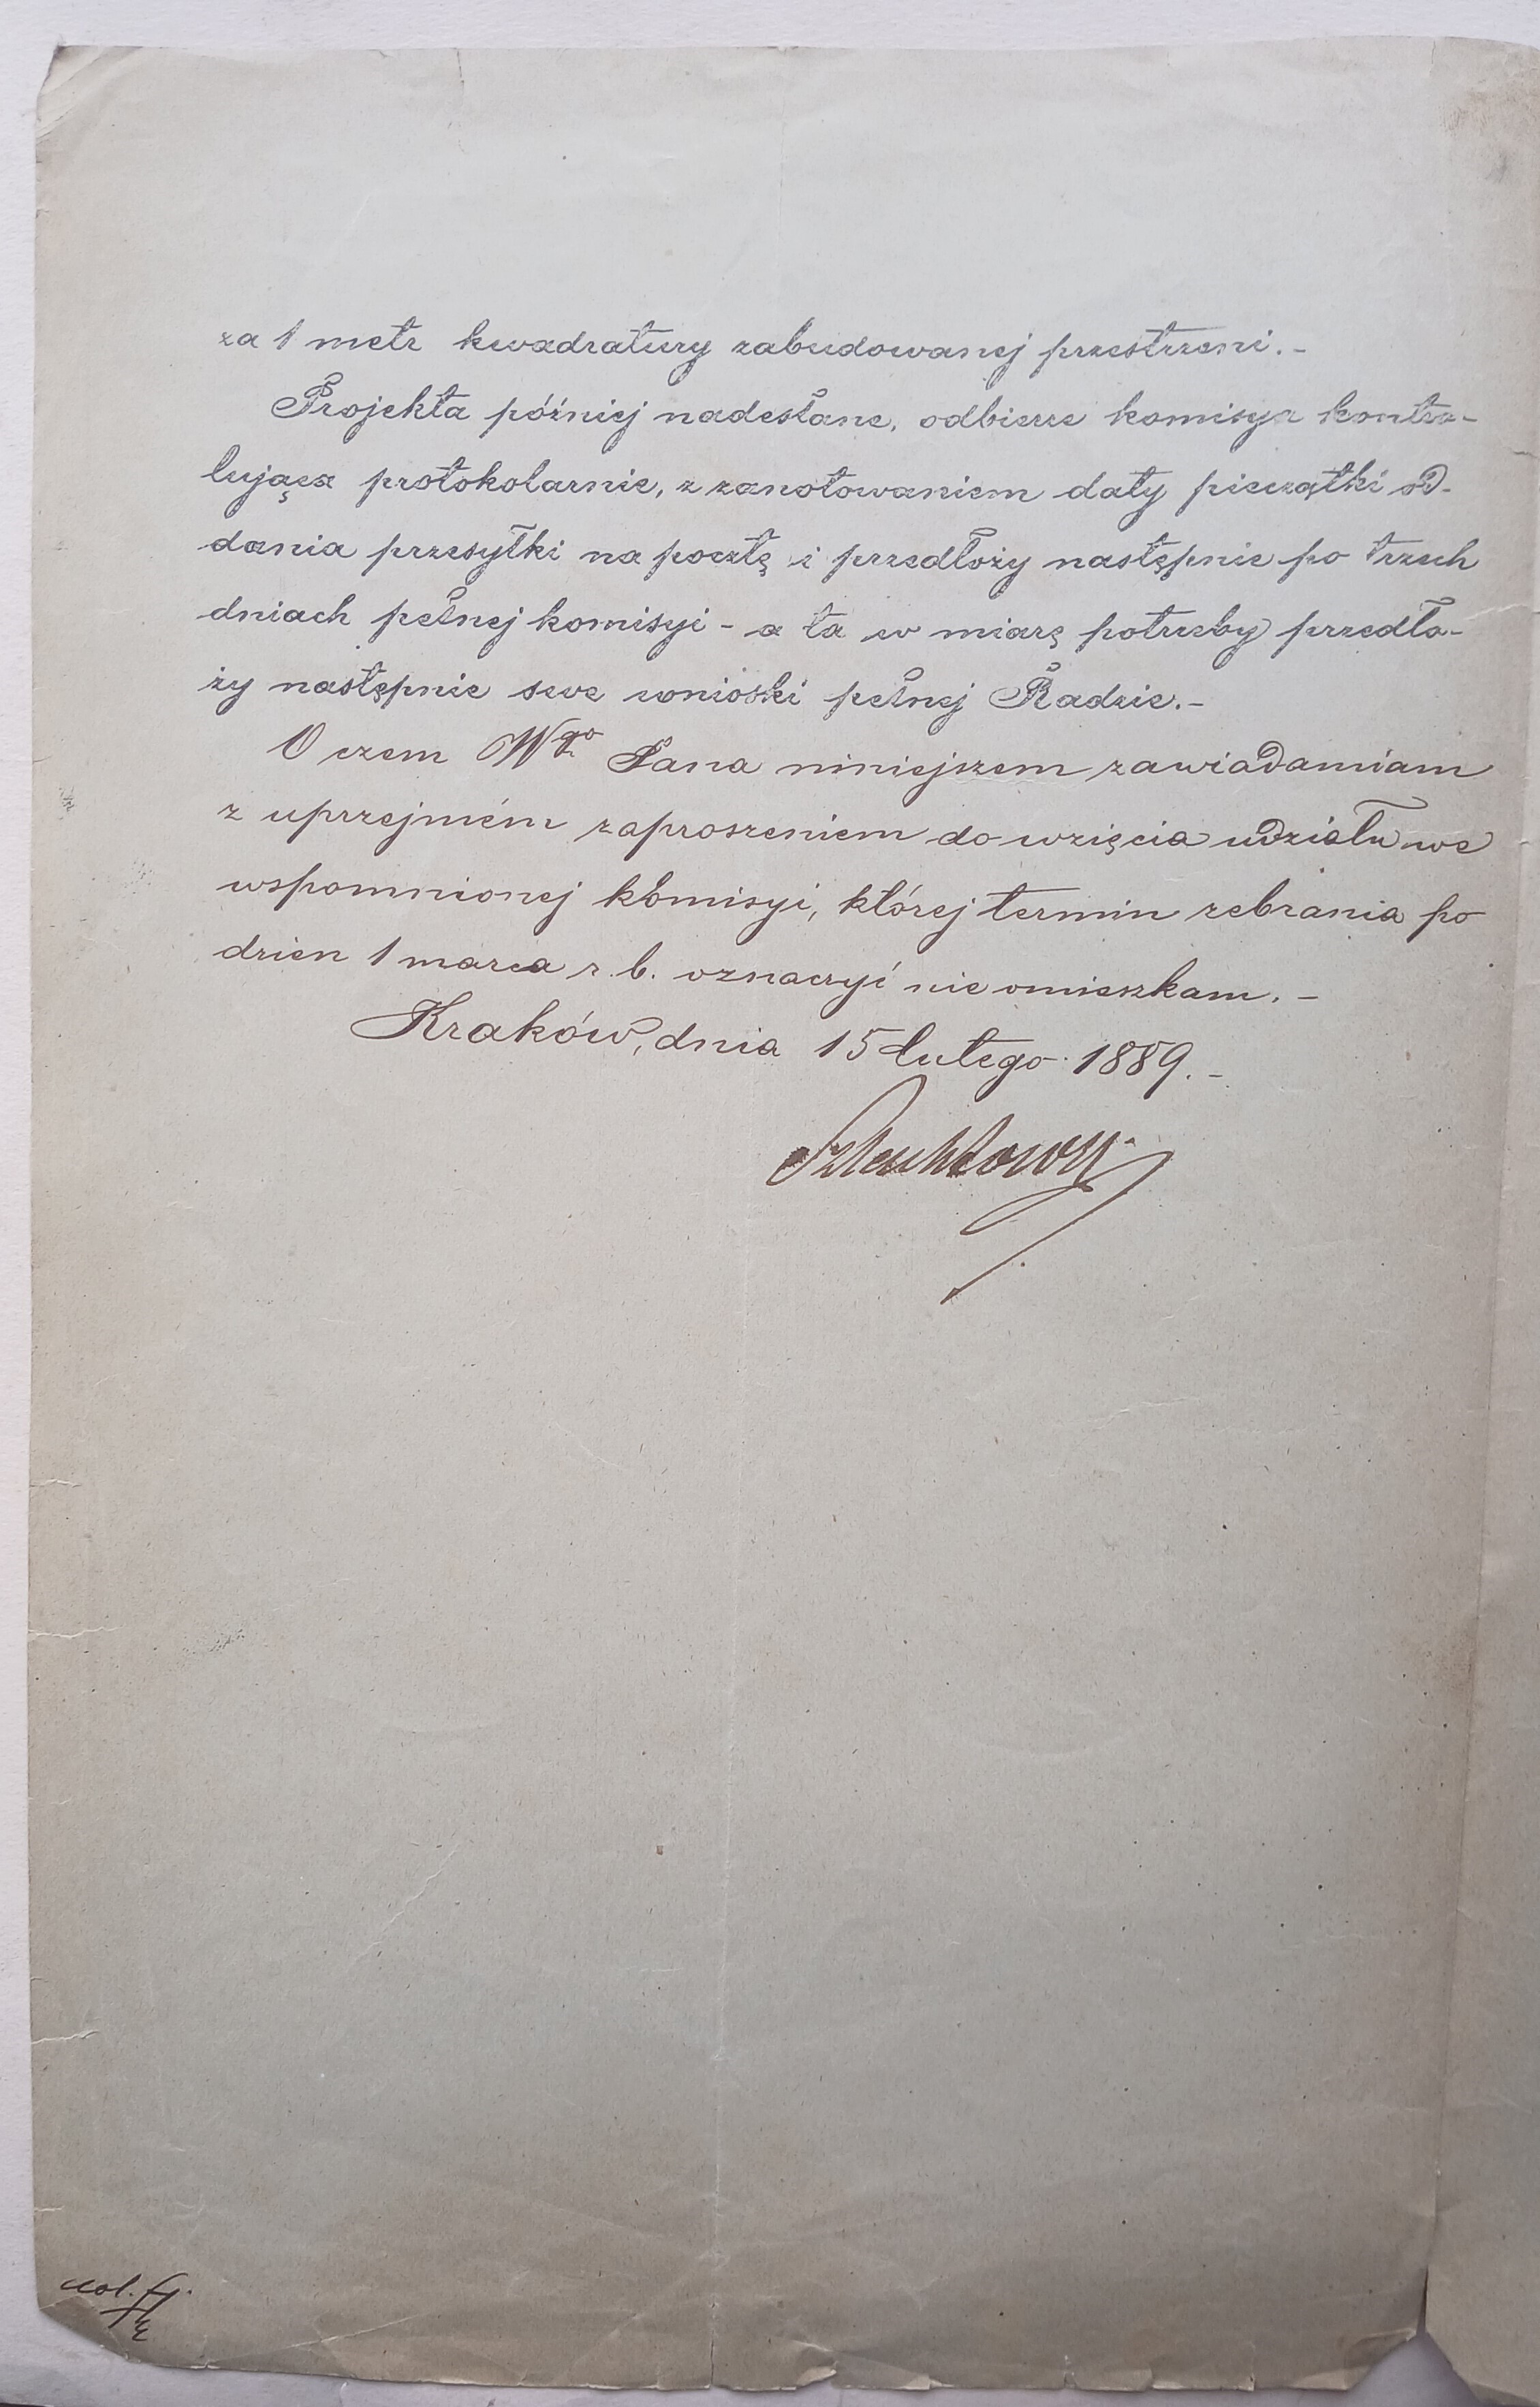 za 1 metr kwadratury zabudowanej przestrzeni.-
Projekta później nadesłane, odbierze komisya kontro-
lująca protokolarnie, z zanotowaniem daty pieczątki od-
dania przesyłki na pocztę i przedłoży następnie po trzech
dniach pełnej komisyi - a ta w miarę potrzeby przedło-
ży następnie swe wnioski pełnej Radzie.-
O czem Wgo Pana niniejszem zawiadamiam
z uprzejmém zaproszeniem do wzięcia udziału we
wspomnionej komisyi, której termin zebrania po
dzien 1 marca r. b. oznaczyć nie omieszkam. -
Kraków, dnia 15 lutego 1889. -
Szlachtowski
col.